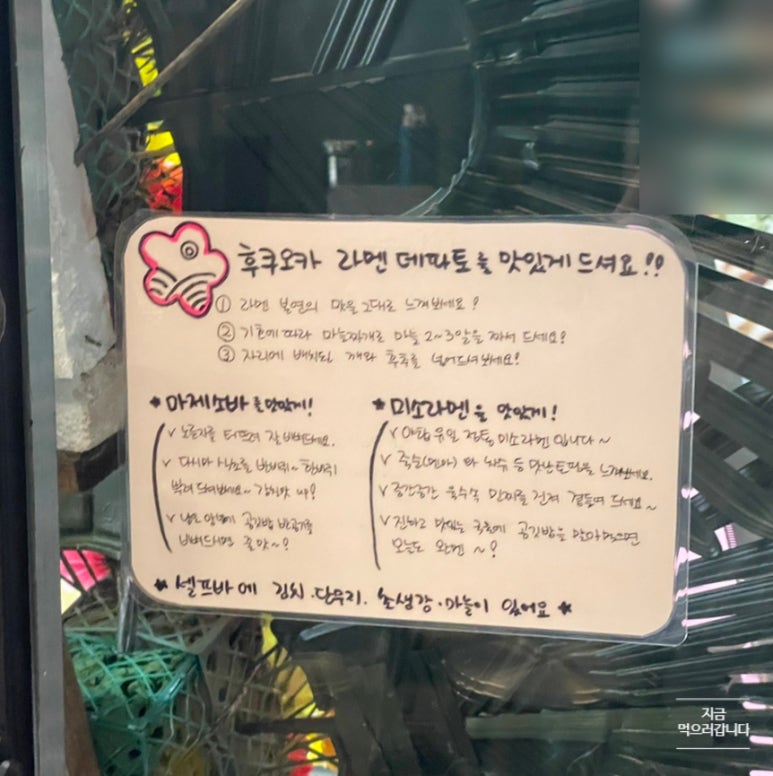 후쿠오카 라멘 데파토를 맛있게 드셔요!!
① 라멘 본연의 맛을 그대로 느껴보세요!
② 기호에 따라 마늘찍개로 마늘 2~3알을 짜서 드세요!
③ 자리에 배치된 깨와 후추를 넣어드셔보세요!
★ 마제소바를 맛있게!
∨ 노른자를 터뜨려 잘 비벼드세요.
∨ 다시마 식초를 반바퀴~한바퀴
뿌려 드셔보세요~ 감칠맛 up!
∨ 남은 양념에 공깃밥 반공기를
비벼드시면 존맛~!
★ 미소라멘을 맛있게!
∨ 유일 정통 미소라멘입니다~
∨ 죽순(멘마)와 옥수수 등 맛난 토핑을 느껴보세요.
∨ 중간중간 육수속 민찌를 건져 곁들여 드세요~
∨ 진하고 맛있는 국물에 공깃밥을 말아먹으면
오늘도 완멘~!
★ 셀프바에 김치·단무지·초생강·마늘이 있어요 ★
지금
먹으러갑니다